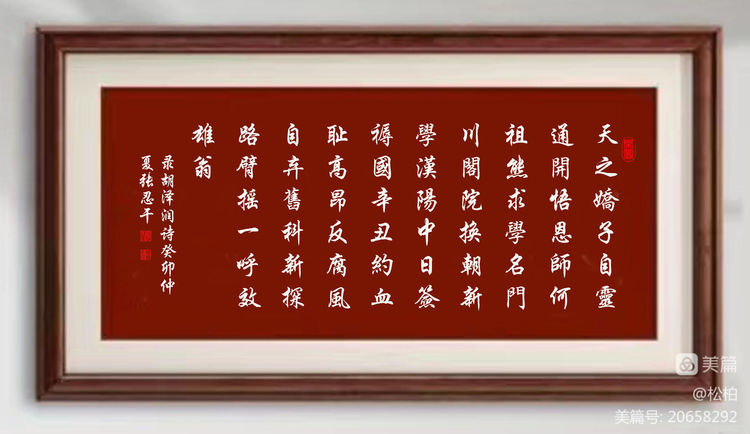 天之嬌子自靈
通開悟恩師何
祖熊求學名門
川閣院換朝新
學漢陽中日簽
褥國辛丑約血
耻高昂反腐風
自弃舊科新探
路臂摇一呼效
雄翁
录胡泽润诗癸卯仲
夏张忍干
美篇
@松柏
美篇号: 20658292